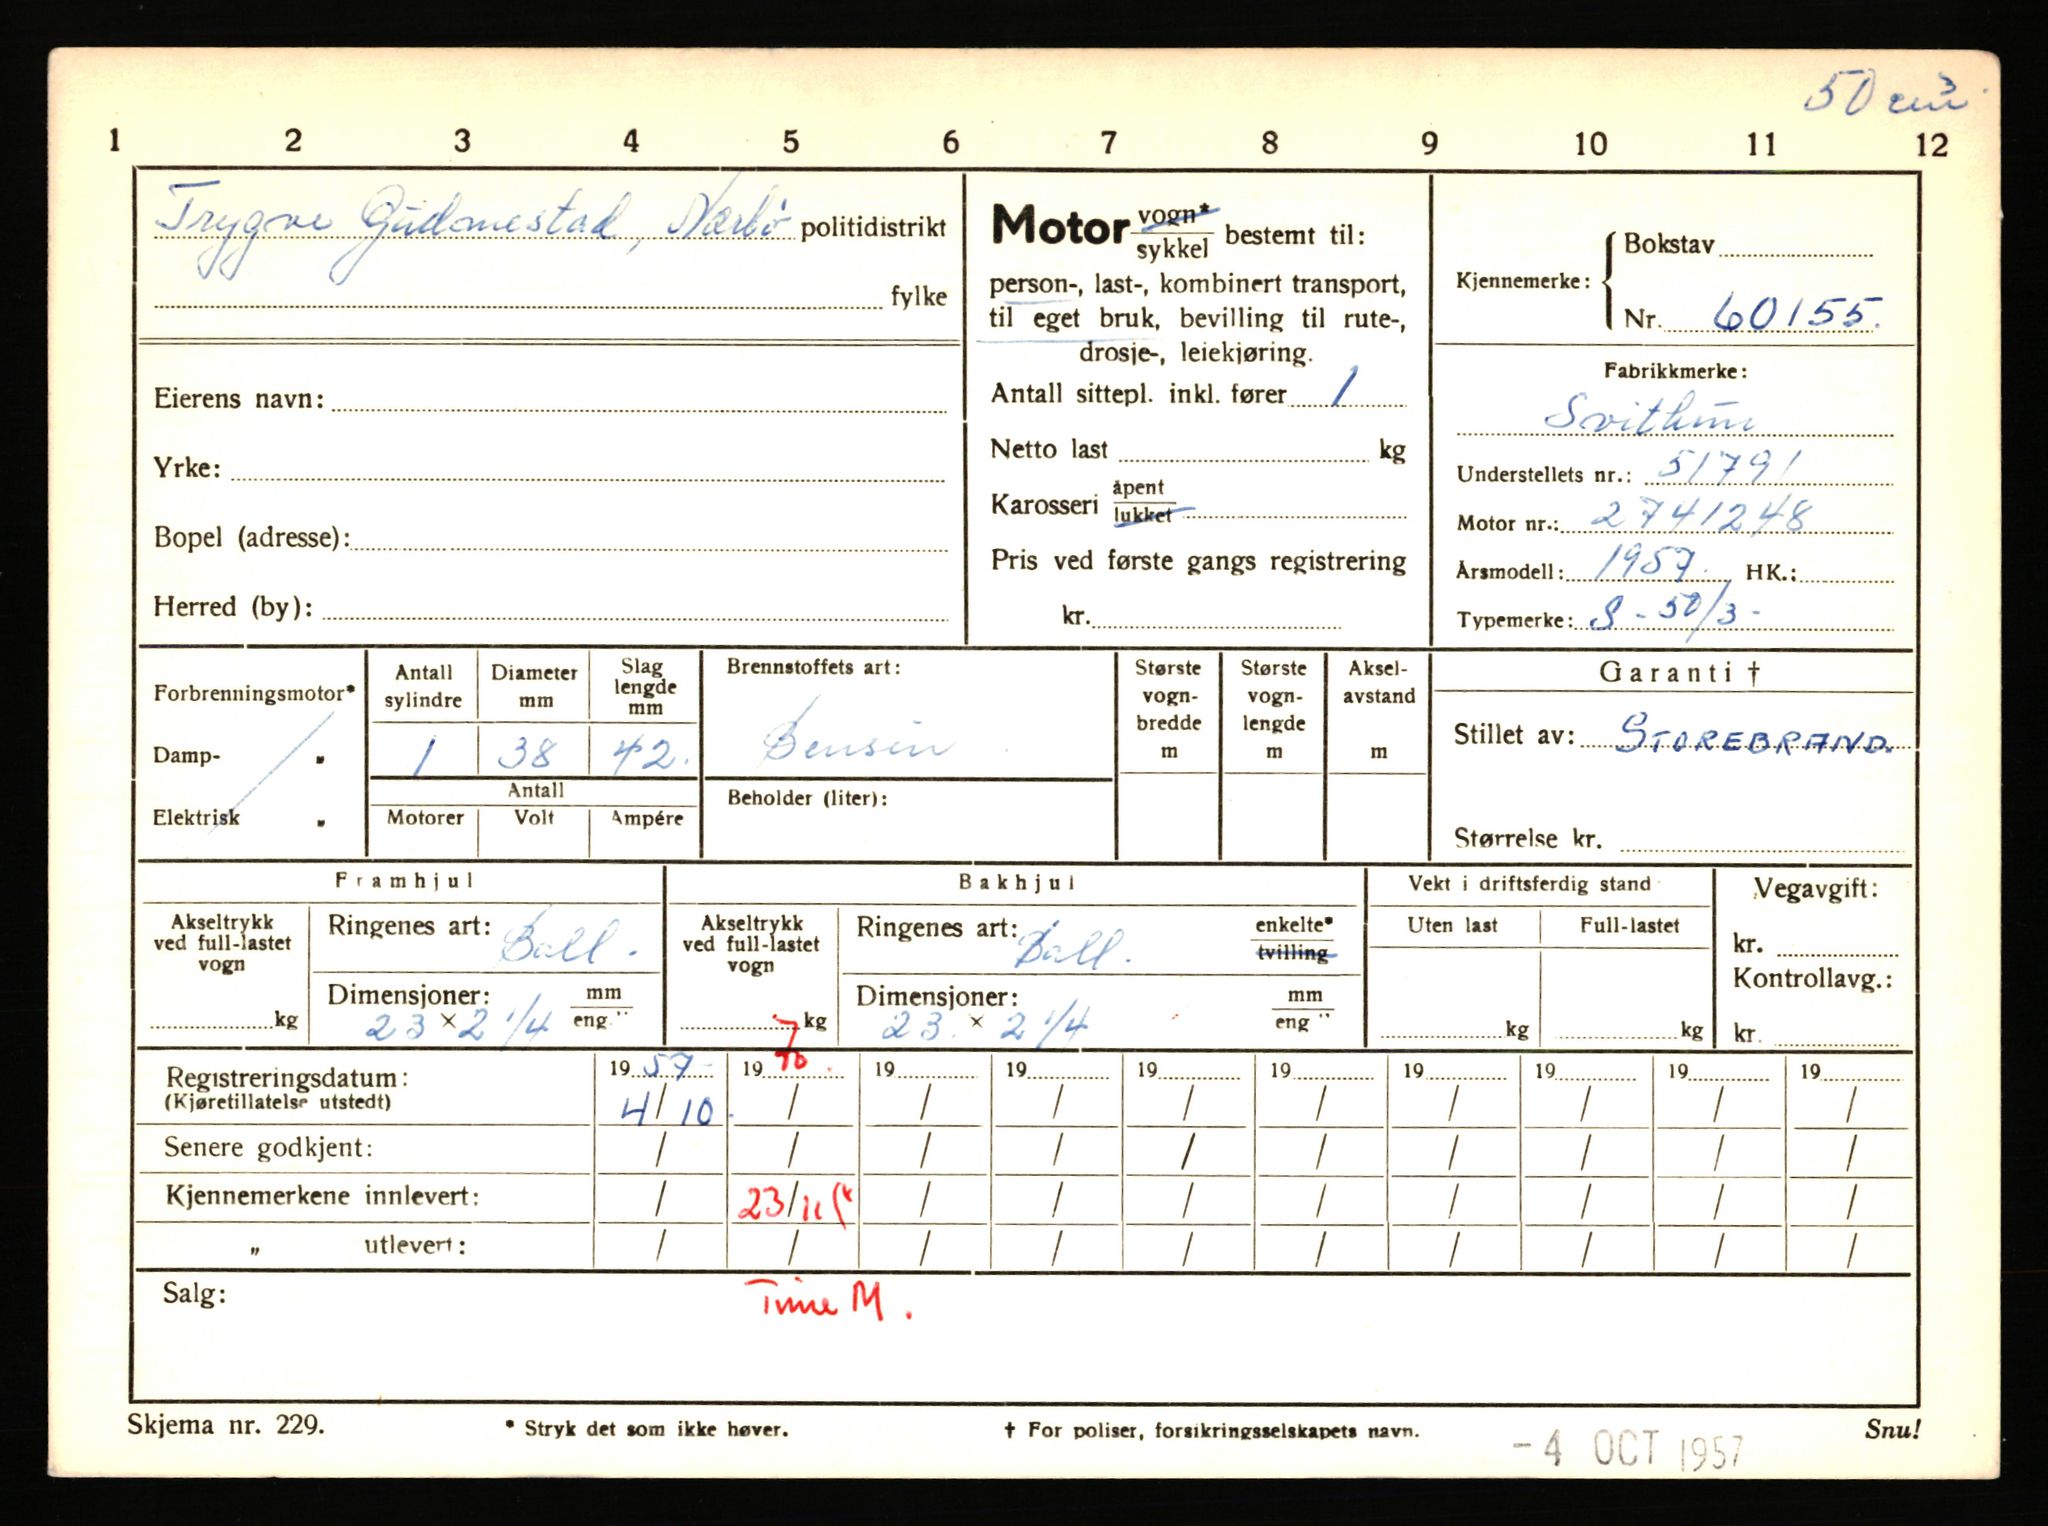 50 cm³
1 2 3 4 5 6 7 8 9 10 11 12
Trygve Gudmestad, Nærbö politidistrikt
fylke
Eierens navn:
Yrke:
Bopel (adresse):
Herred (by):
Motor vogn* / sykkel bestemt til:
person-, last-, kombinert transport,
til eget bruk, bevilling til rute-,
drosje-, leiekjøring.
Antall sittepl. inkl. fører 1
Netto last kg
Karosseri åpent / lukket
Pris ved første gangs registrering
kr.
Kjennemerke: Bokstav
Nr. 60155.
Fabrikkmerke:
Svithun
Understellets nr.: 51791
Motor nr.: 2741248
Årsmodell: 1957. HK.:
Typemerke: S - 50/3 -
Forbrenningsmotor*
Damp- "
Elektrisk "
Antall sylindre 1
Diameter mm 38
Slag lengde mm 42.
Antall
Motorer Volt Ampére
Brennstoffets art:
Bensin
Beholder (liter):
Største vogn-bredde m
Største vogn-lengde m
Aksel-avstand m
Garanti †
Stillet av: STOREBRAND.
Størrelse kr.
Framhjul
Akseltrykk ved full-lastet vogn
kg
Ringenes art: Ball.
Dimensjoner: mm / eng."
23 × 2 1/4
Bakhjul
Akseltrykk ved full-lastet vogn
kg
Ringenes art: Ball. enkelte* / tvilling
Dimensjoner: mm / eng "
23. × 2 1/4
Vekt i driftsferdig stand
Uten last Full-lastet
kg kg
Vegavgift:
kr.
Kontrollavg.:
kr.
Registreringsdatum: 19 57- 19 70. 19 19 19 19 19 19 19 19
(Kjøretillatelse utstedt) 4/10. / / / / / / / / /
Senere godkjent: / / / / / / / / / /
Kjennemerkene innlevert: / 23/11 / / / / / / / /
" utlevert: / / / / / / / / / /
Salg: Time M.
Skjema nr. 229. * Stryk det som ikke høver. † For poliser, forsikringsselskapets navn. Snu!
-4 OCT 1957